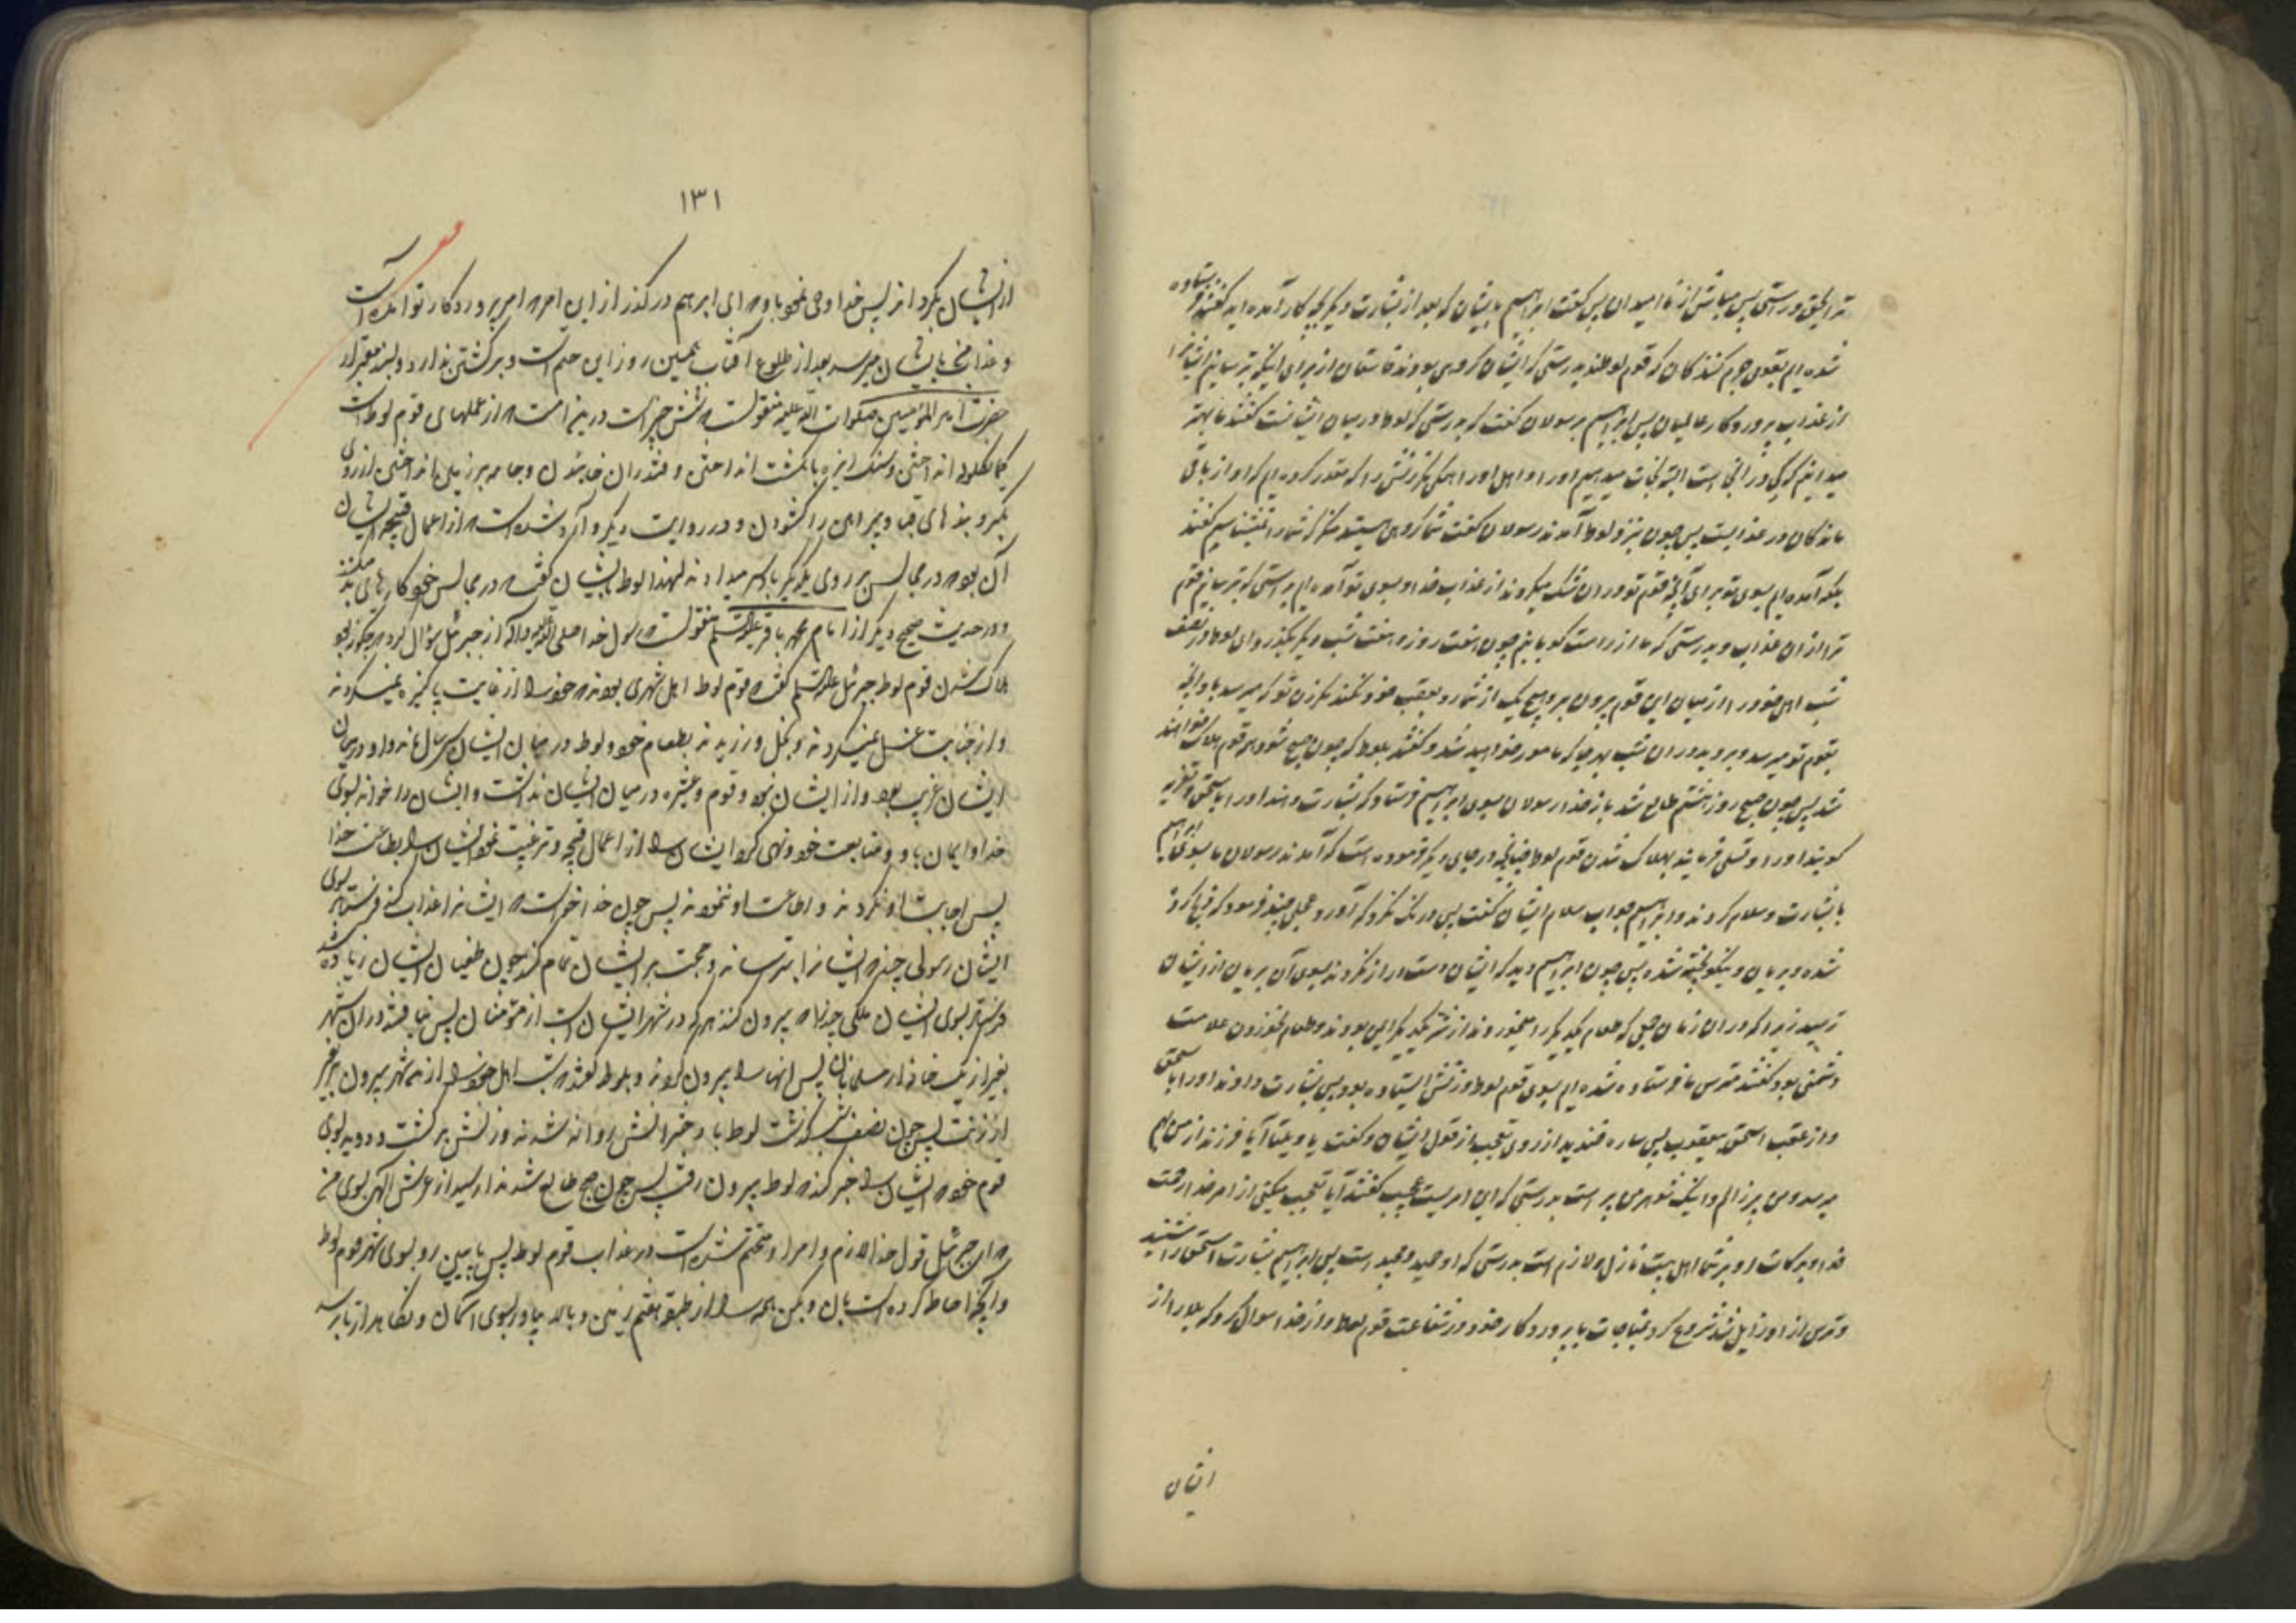 ترا بحق و راستی پس مباش از نا امیدان پس گفت ابراهیم بایشان که بعد از بشارت دیگر بچه کار آمده اید گفتند فرستاده
شده ایم بقوم جرم کنندگان که قوم لوطند بدرستی که ایشان گروهی بودند فاسقان از برای اینکه بترسانیم ایشانرا
از عذاب پروردگار عالمیان پس ابراهیم برسولان گفت که بدرستی که لوط در میان ایشانست گفتند ما بهتر
میدانیم که کی در آنجا است البته نجات میدهیم او را و اهل او را همگی مگر زنش را که مقدر کرده ایم که او از باقی
ماندگان در عذابست پس چون بنزد لوط آمدند رسولان گفت شما گروهی هستید منکر که شما را نمیشناسیم گفتند
بلکه آمده ایم بسوی تو برای آنچه قوم تو در ان شک میکردند از عذاب خدا و بسوی تو آمده ایم براستی که بترسانیم قوم
ترا از ان عذاب و بدرستی که ما از راست گویانیم چون هفت روز و هفت شب دیگر بگذرد ای لوط در نصف
شب اهل خود را از میان این قوم بیرون بر و هیچ یک از شما رو بعقب خود نکنند مگر زن تو که میرسد باو آنچه
بقوم تو میرسد و بروید در ان شب بهر جا که مامور خواهید شد و گفتند بلوط که چون صبح شود همه قوم هلاک خواهند
شد پس چون صبح روز هشتم طالع شد باز خدا رسولان بسوی ابراهیم فرستاد که بشارت دهند او را باسحق و تعزیه
گویند او را و تسلی فرمایند بهلاک شدن قوم لوط چنانچه در جای دیگر فرموده است که آمدند رسولان ما بسوی ابراهیم
با بشارت و سلام کردند و ابراهیم جواب سلام ایشان گفت پس درنگ نکرد که آورد عجلی حنیذ فرمود که فربه کرده
شده و بریان و نیکو پخته شده پس چون ابراهیم دید که ایشان دست دراز نکردند بسوی آن بریان از ایشان
ترسید زیرا که در ان زمان چنین که طعام یکدیگر را میخوردند از شر یکدیگر ایمن بودند و طعام نخوردن علامت
دشمنی بود گفتند مترس ما فرستاده شده ایم بسوی قوم لوط و زنش ایستاده بود پس بشارت دادند او را باسحق
و از عقب اسحق بیعقوب پس ساره خندید از روی تعجب از قول ایشان و گفت یا ویلتا آیا فرزند از من بهم
میرسد و من پیر زالم و اینک شوهر من پیر است بدرستی که این امریست عجیب گفتند آیا تعجب میکنی از امر خدا رحمت
خدا و برکات او بر شما اهل بیت نازل و لازم است بدرستی که او حمید و مجید است پس ابراهیم بشارت اسحق را شنید
و ترس از او زایل شد شروع کرد بمناجات با پروردگار خود در شفاعت قوم لوط و از خدا سوال کرد که بلا را از
ایشان
۱۳۱
از ایشان بگرداند پس خدا وحی نمود باو که ای ابراهیم در گذر از این امر که امر پروردگار تو آمده است
و عذاب من بایشان میرسد بعد از طلوع آفتاب همین روز این حتم است و برگشتن ندارد و بسند معتبر از
حضرت امیر المؤمنین صلوات الله علیه منقولست که شش چیز است در این امت که از عملهای قوم لوط است
کمان گلوله انداختن و سنگ ریزه بانگشت انداختن و قندران خائیدن و جامه بر زمین انداختن از روی
تکبر و بندهای قبا و پیراهن را گشودن و در روایت دیگر وارد شده است که از اعمال قبیحه ایشان
آن بود که در مجالس بر روی یکدیگر باد سر میدادند لهذا لوط بایشان گفت که در مجالس خود کارهای بد میکنند
و در حدیث صحیح دیگر از امام محمد باقر علیه السلم منقولست که رسول خدا صلی الله علیه و اله از جبرئیل سؤال کرد که چگونه بود
هلاک شدن قوم لوط جبرئیل علیه السلم گفت که قوم لوط اهل شهری بودند که خود را از غایت پاکیزه نمیکردند
و از جنابت غسل نمیکردند و بخل ورزیدند بطعام خود و لوط در میان ایشان سی سال ماند و او در میان
ایشان غریب بود و از ایشان نبود و قوم و عشیره در میان ایشان نداشت و ایشان را خواند بسوی
خدا و ایمان باو و متابعت خود و نهی کرد ایشان را از اعمال قبیحه و ترغیب نمود ایشان را بطاعت خدا
پس اجابت او نکردند و اطاعت او ننمودند پس چون خدا خواست که ایشانرا عذاب کند فرستاد بسوی
ایشان رسولی چند که ایشانرا بترسانند و حجت بر ایشان تمام کنند چون طغیان ایشان زیاده شد
فرستاد بسوی ایشان ملکی چند را که بیرون کنند هر که در شهر ایشان است از مؤمنان پس نیافتند در ان شهر
بغیر از یک خانه از مسلمانان پس انها را بیرون کردند و بلوط گفتند که شب اهل خود را از این شهر بیرون بر بغیر
از زنت پس چون نصف شب گذشت لوط با دخترانش روانه شدند و زنش برگشت و دوید بسوی
قوم خود که ایشان را خبر کند که لوط بیرون رفت پس چون صبح طالع شد ندا رسید از عرش الهی بسوی من
که ای جبرئیل قول خدا لازم و امر او متحتم شده است در عذاب قوم لوط پس پائین رو بسوی شهر قوم لوط
و آنچه احاطه کرده است بان و بکن همه را از طبقه هفتم زمین و بالا بیاور بسوی آسمان و نگاهدار تا برسد